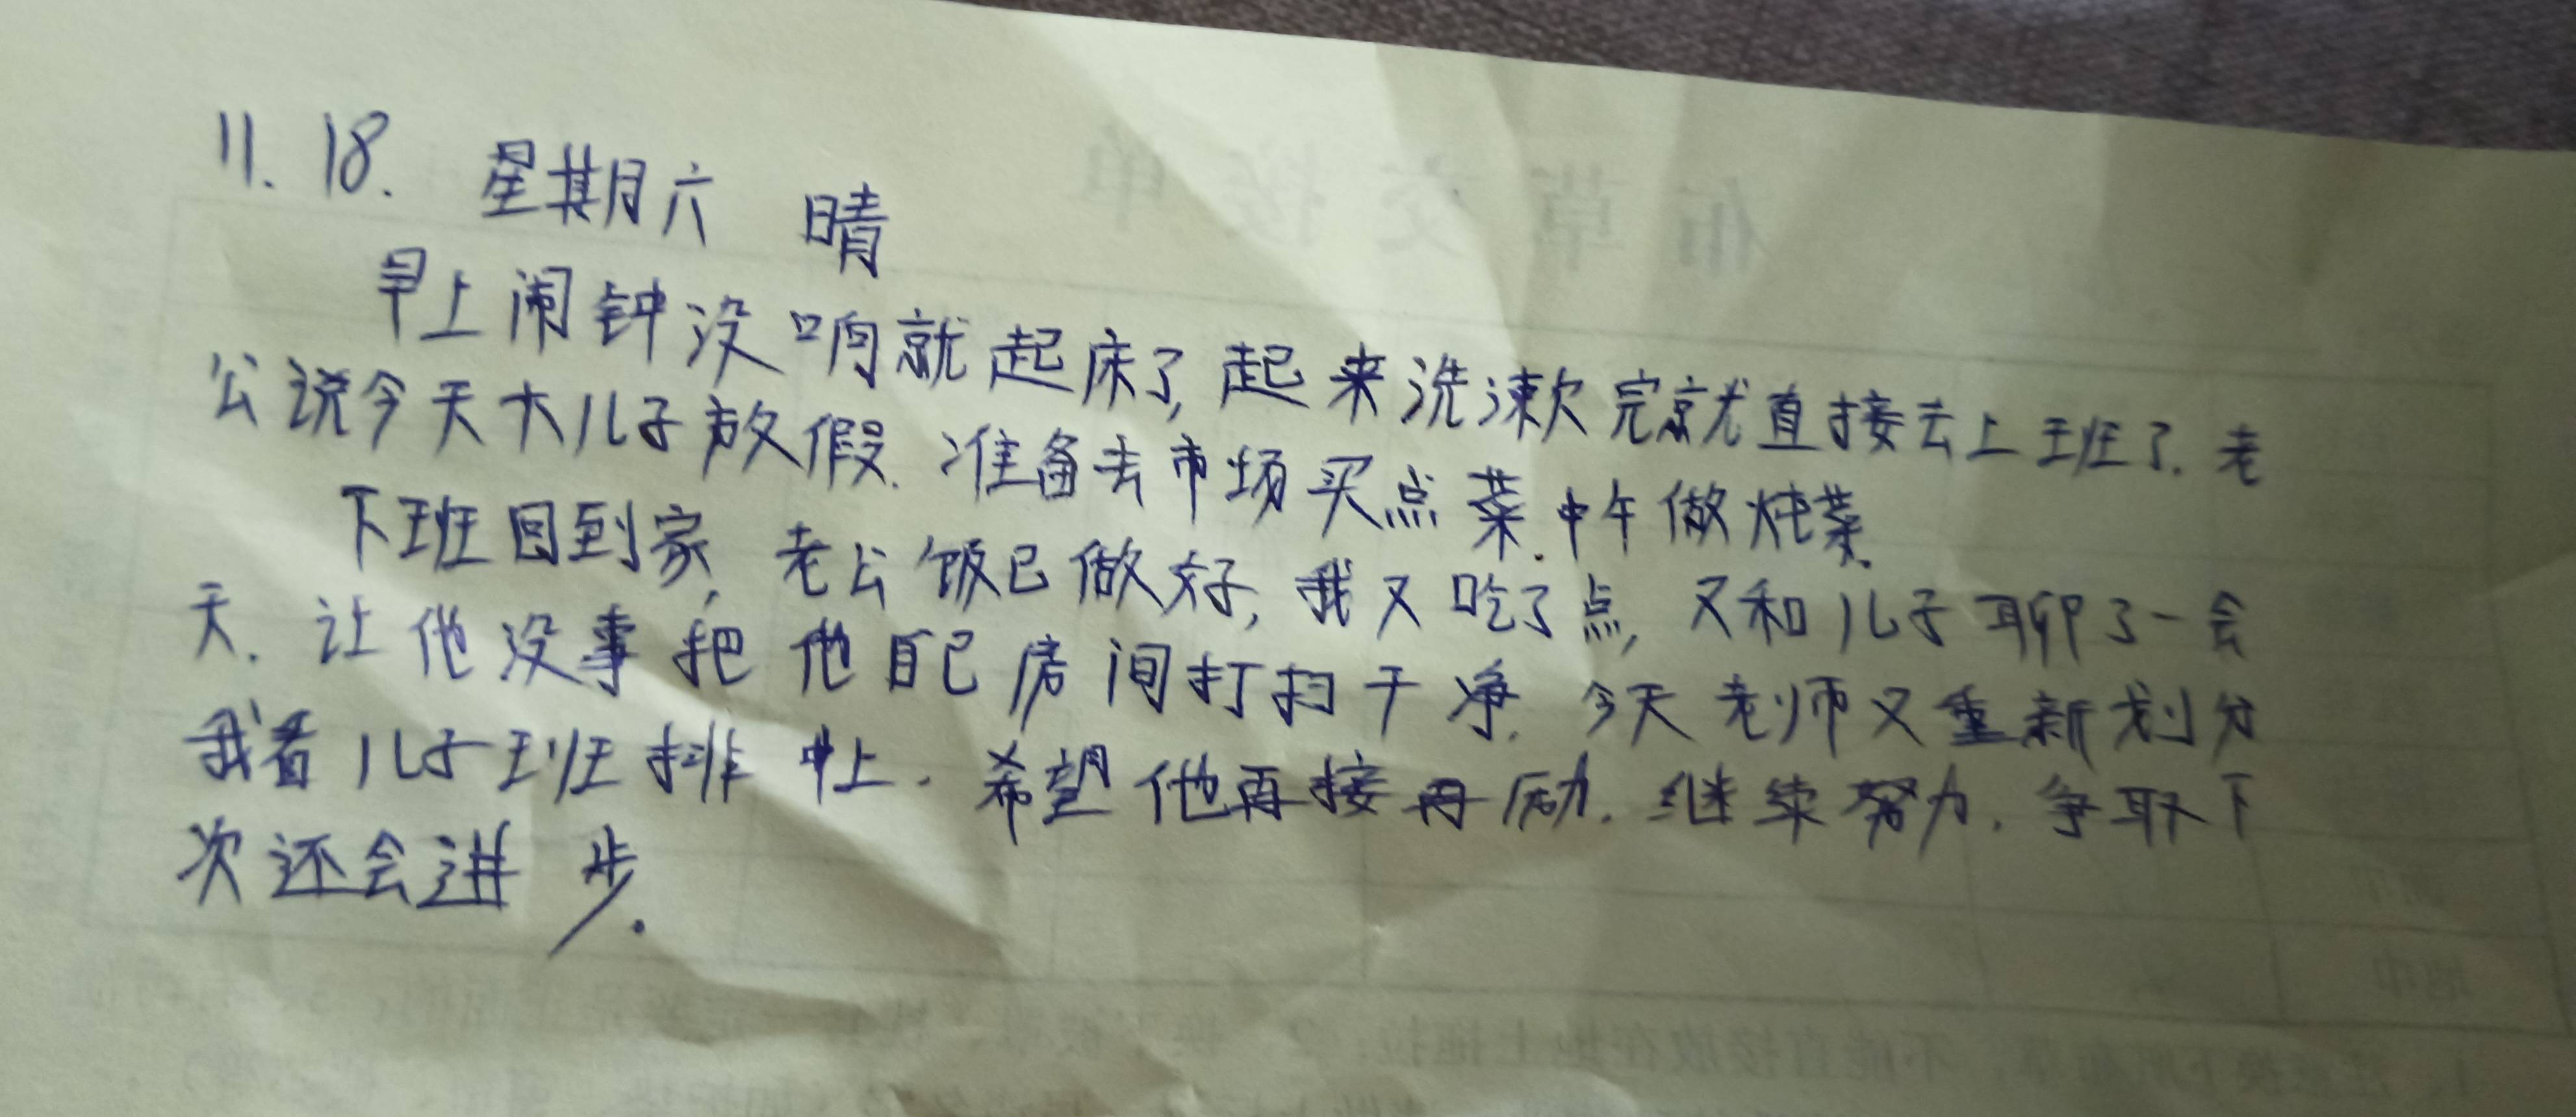 11.18. 星期六 晴
早上闹钟没响就起床了,起来洗漱完就直接去上班了.老
公说今天大儿子放假.准备去市场买点菜.中午做炖菜.
下班回到家,老公饭已做好,我又吃了点,又和儿子聊了一会
天.让他没事把他自己房间打扫干净.今天老师又重新划分
我看儿子班排中上.希望他再接再励.继续努力.争取下
次还会进步.